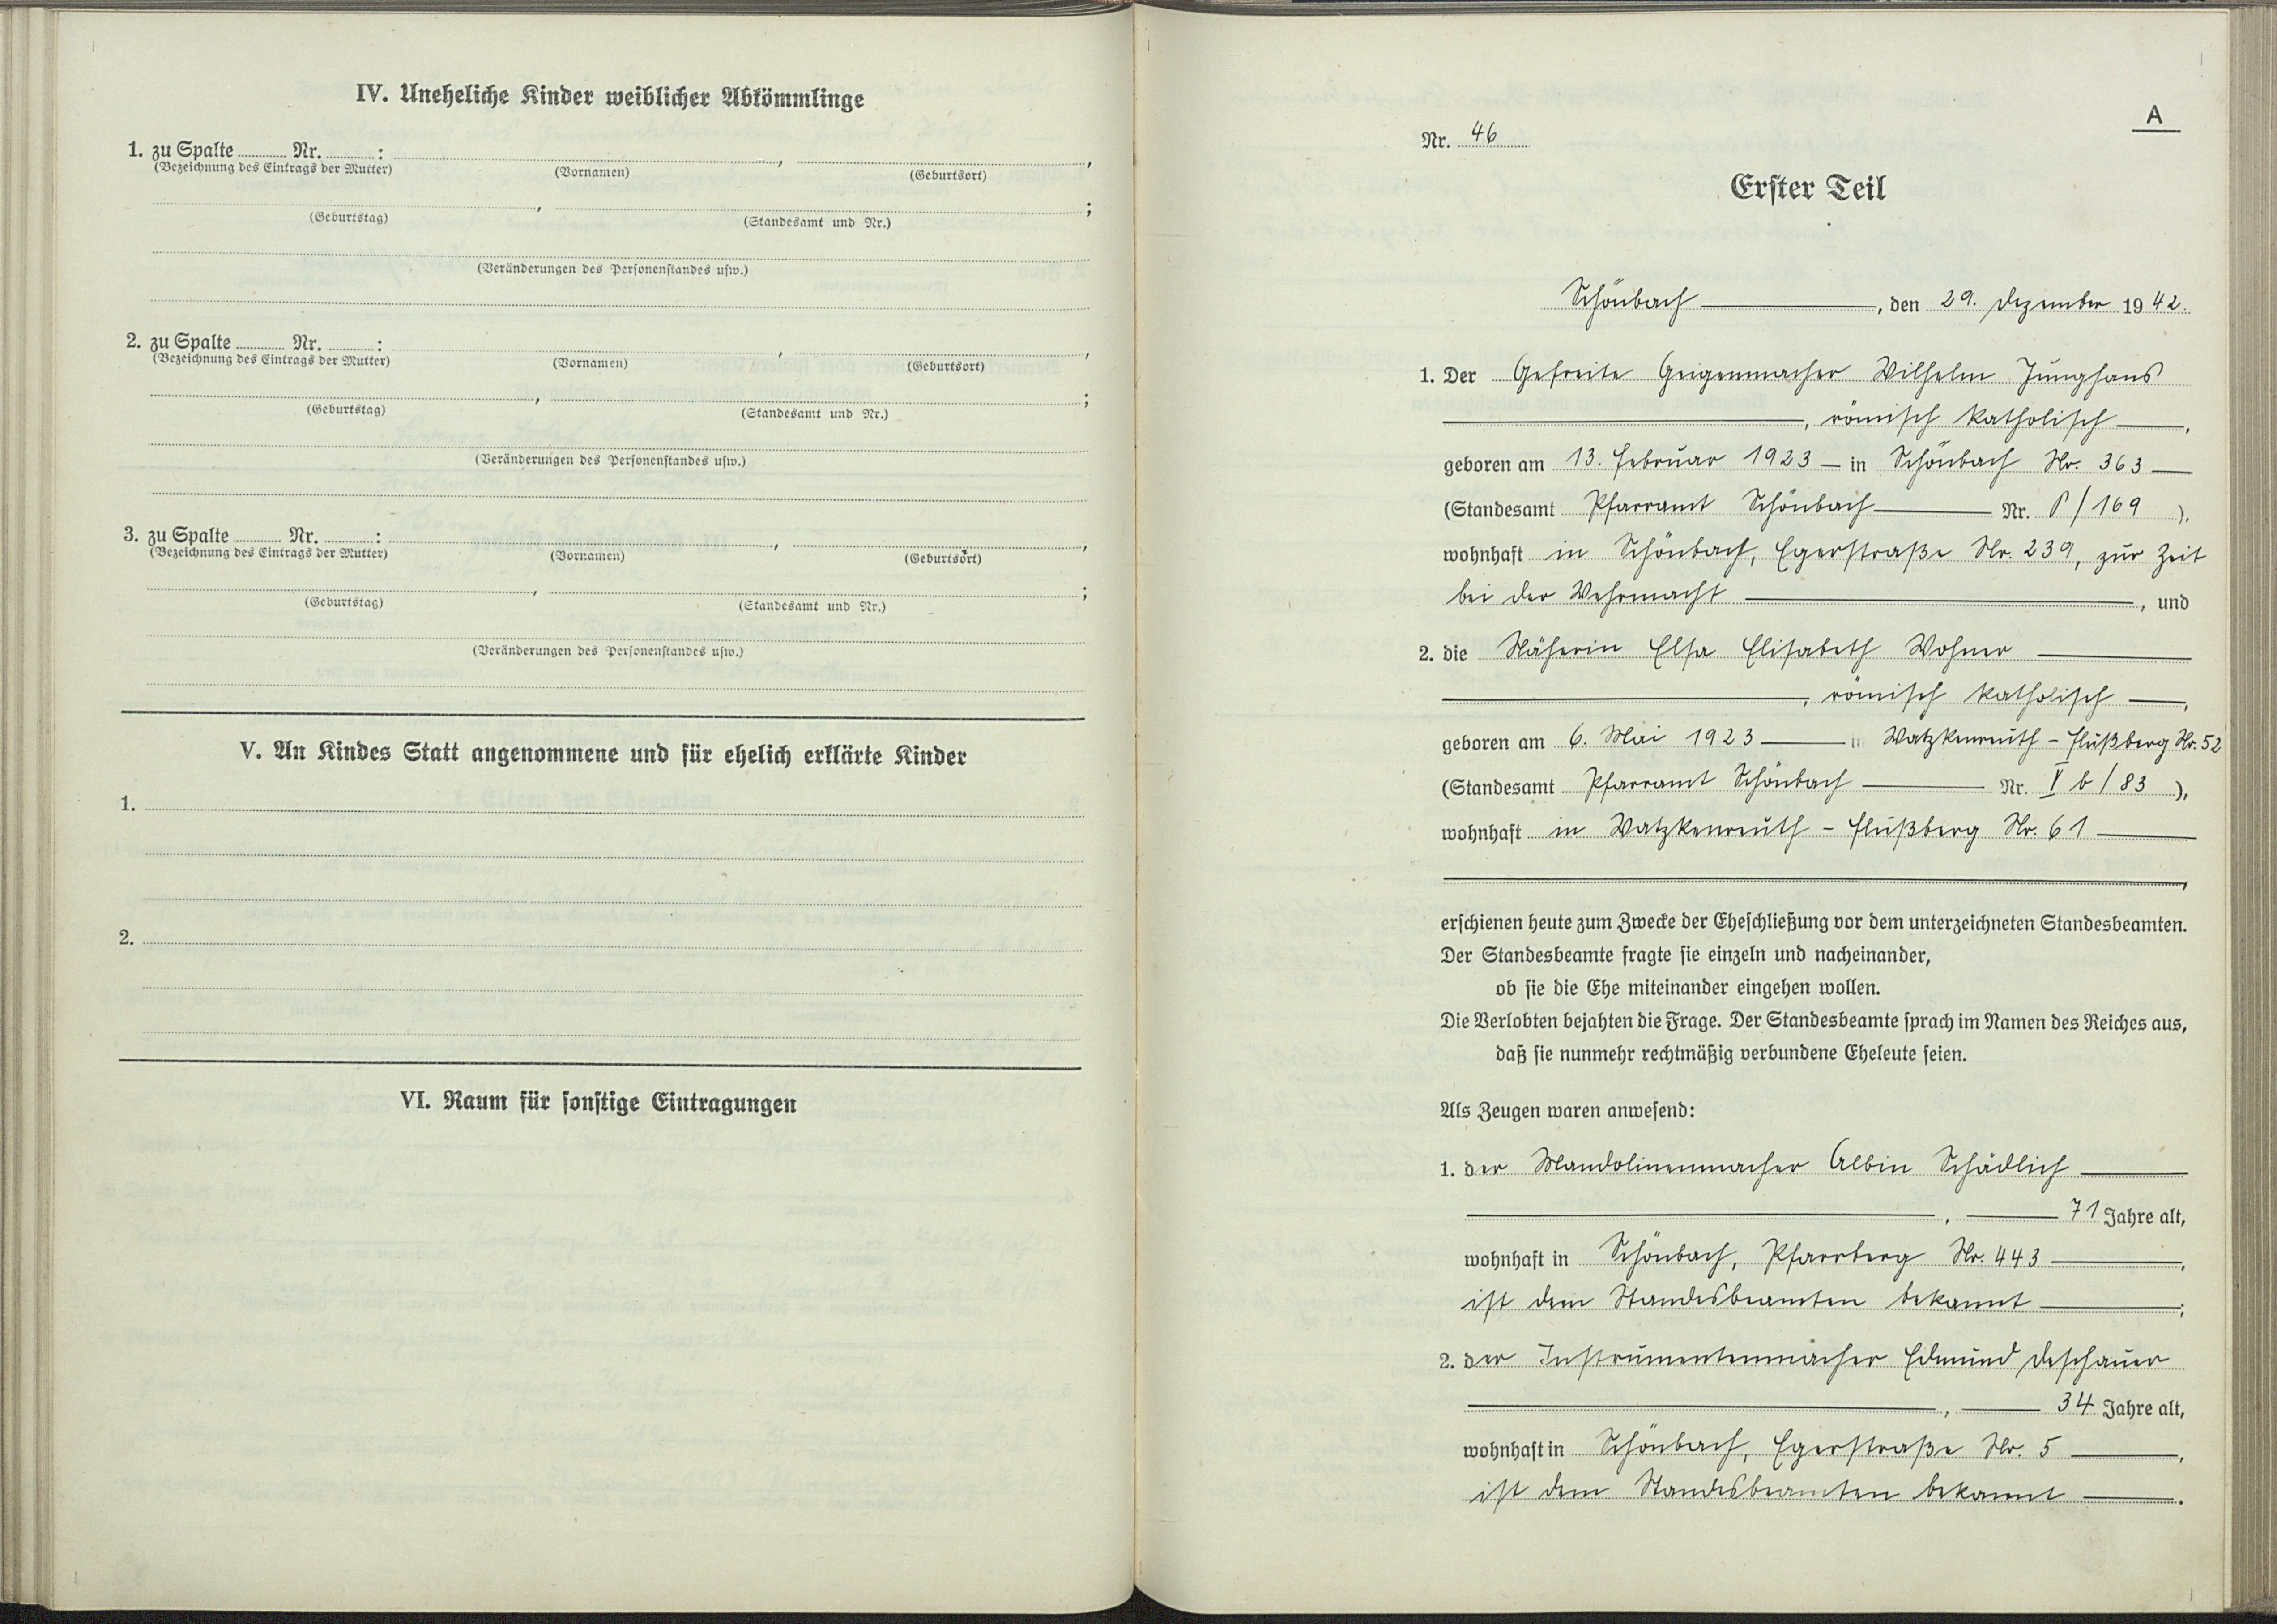 IV. Uneheliche Kinder weiblicher Abkömmlinge
1. zu Spalte Nr. : , ,
(Bezeichnung des Eintrags der Mutter) (Vornamen) (Geburtsort)
, ;
(Geburtstag) (Standesamt und Nr.)
(Veränderungen des Personenstandes usw.)
2. zu Spalte Nr. : , ,
(Bezeichnung des Eintrags der Mutter) (Vornamen) (Geburtsort)
, ;
(Geburtstag) (Standesamt und Nr.)
(Veränderungen des Personenstandes usw.)
3. zu Spalte Nr. : , ,
(Bezeichnung des Eintrags der Mutter) (Vornamen) (Geburtsort)
, ;
(Geburtstag) (Standesamt und Nr.)
(Veränderungen des Personenstandes usw.)
V. An Kindes Statt angenommene und für ehelich erklärte Kinder
1.
2.
VI. Raum für sonstige Eintragungen
A
Nr. 46
Erster Teil
Schönbach, den 29. Dezember 1942.
1. Der Gefreite Geigenmacher Wilhelm Junghans
, römisch katholisch,
geboren am 13. Februar 1923 in Schönbach Nr. 363
(Standesamt Pfarramt Schönbach Nr. P/169 ),
wohnhaft in Schönbach, Egerstraße Nr. 239, zur Zeit
bei der Wehrmacht, und
2. die Näherin Elsa Elisabeth Wohner
, römisch katholisch,
geboren am 6. Mai 1923 in Watzkenreuth - Flußberg Nr. 52
(Standesamt Pfarramt Schönbach Nr. V b/83 ),
wohnhaft in Watzkenreuth - Flußberg Nr. 61
,
erschienen heute zum Zwecke der Eheschließung vor dem unterzeichneten Standesbeamten.
Der Standesbeamte fragte sie einzeln und nacheinander,
ob sie die Ehe miteinander eingehen wollen.
Die Verlobten bejahten die Frage. Der Standesbeamte sprach im Namen des Reiches aus,
daß sie nunmehr rechtmäßig verbundene Eheleute seien.
Als Zeugen waren anwesend:
1. der Mandolinenmacher Albin Schädlich
, 71 Jahre alt,
wohnhaft in Schönbach, Pfarrberg Nr. 443,
ist dem Standesbeamten bekannt;
2. der Instrumentenmacher Edmund Deschauer
, 34 Jahre alt,
wohnhaft in Schönbach, Egerstraße Nr. 5,
ist dem Standesbeamten bekannt.